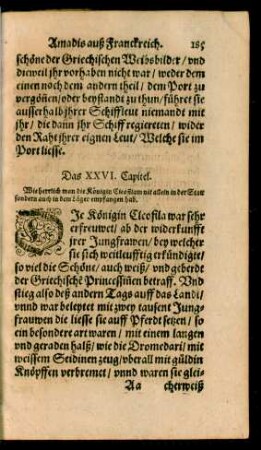 Amadis auß Franckreich. 185
schöne der Griechischen Weibsbilder / vnd
dieweil jhr vorhaben nicht war / weder dem
einen noch dem andern theil / dem Port zu
vergöñen / oder beystandt zu thun / führet sie
ausserhalb jhrer Schiffleut niemandt mit
jhr / die dann jhr Schiff regiereten / wider
den Raht jhrer eignen Leut / Welche sie im
Port liesse.
Das XXVI. Capitel.
Wie herrlich man die Königin Cleofilam nit allein in der Statt
sondern auch in dem Läger empfangen hab.
DJe Königin Cleofila war sehr
erfreuwet / ab der widerkunfft
jrer Jungfrawen / bey welcher
sie sich weitleufftig erkündigte /
so viel die Schöne / auch weiß / vnd geberdt
der Griechischē Princessiñen betraff. Vnd
stieg also deß andern Tags auff das Landt /
vnnd war beleytet mit zwey tausent Jung-
frauwen die liesse sie auff Pferdt setzen / so
ein besondere art waren / mit einem langen
vnd geraden halß / wie die Dromedari / mit
weissem Seidinen zeug / vberall mit güldin
Knöpffen verbremet / vnnd waren sie glei-
Aa cherweiß